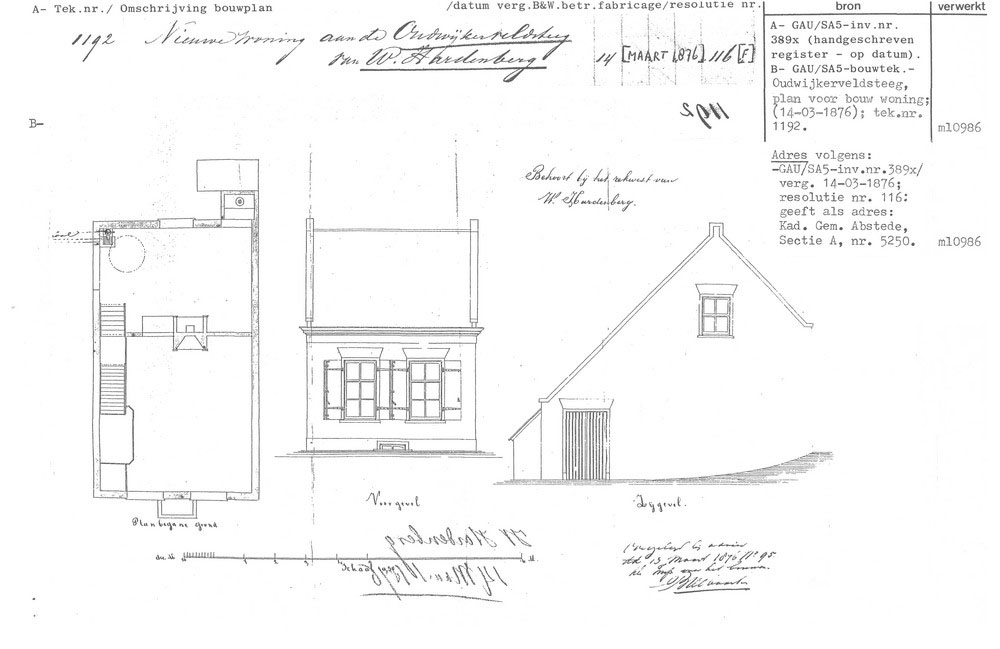 A- Tek.nr./ Omschrijving bouwplan
/datum verg.B&W.betr.fabricage/resolutie nr.
bron
verwerkt
1192 Nieuwe woning aan de Oudwijkerveldsteeg
van W. Hardenberg
14 [MAART 1876]. 116 [F]
A- GAU/SA5-inv.nr.
389x (handgeschreven
register - op datum).
B- GAU/SA5-bouwtek.-
Oudwijkerveldsteeg,
plan voor bouw woning;
(14-03-1876); tek.nr.
1192.
ml0986
1192
B-
Adres volgens:
-GAU/SA5-inv.nr.389x/
verg. 14-03-1876;
resolutie nr. 116:
geeft als adres:
Kad. Gem. Abstede,
Sectie A, nr. 5250.
ml0986
Behoort bij het rekwest van
W. Hardenberg.
Plan begane grond
Voorgevel
Zijgevel.
W Hardenberg
Schaal
M.
bij advies
dd. 13 Maart 1876 No 95